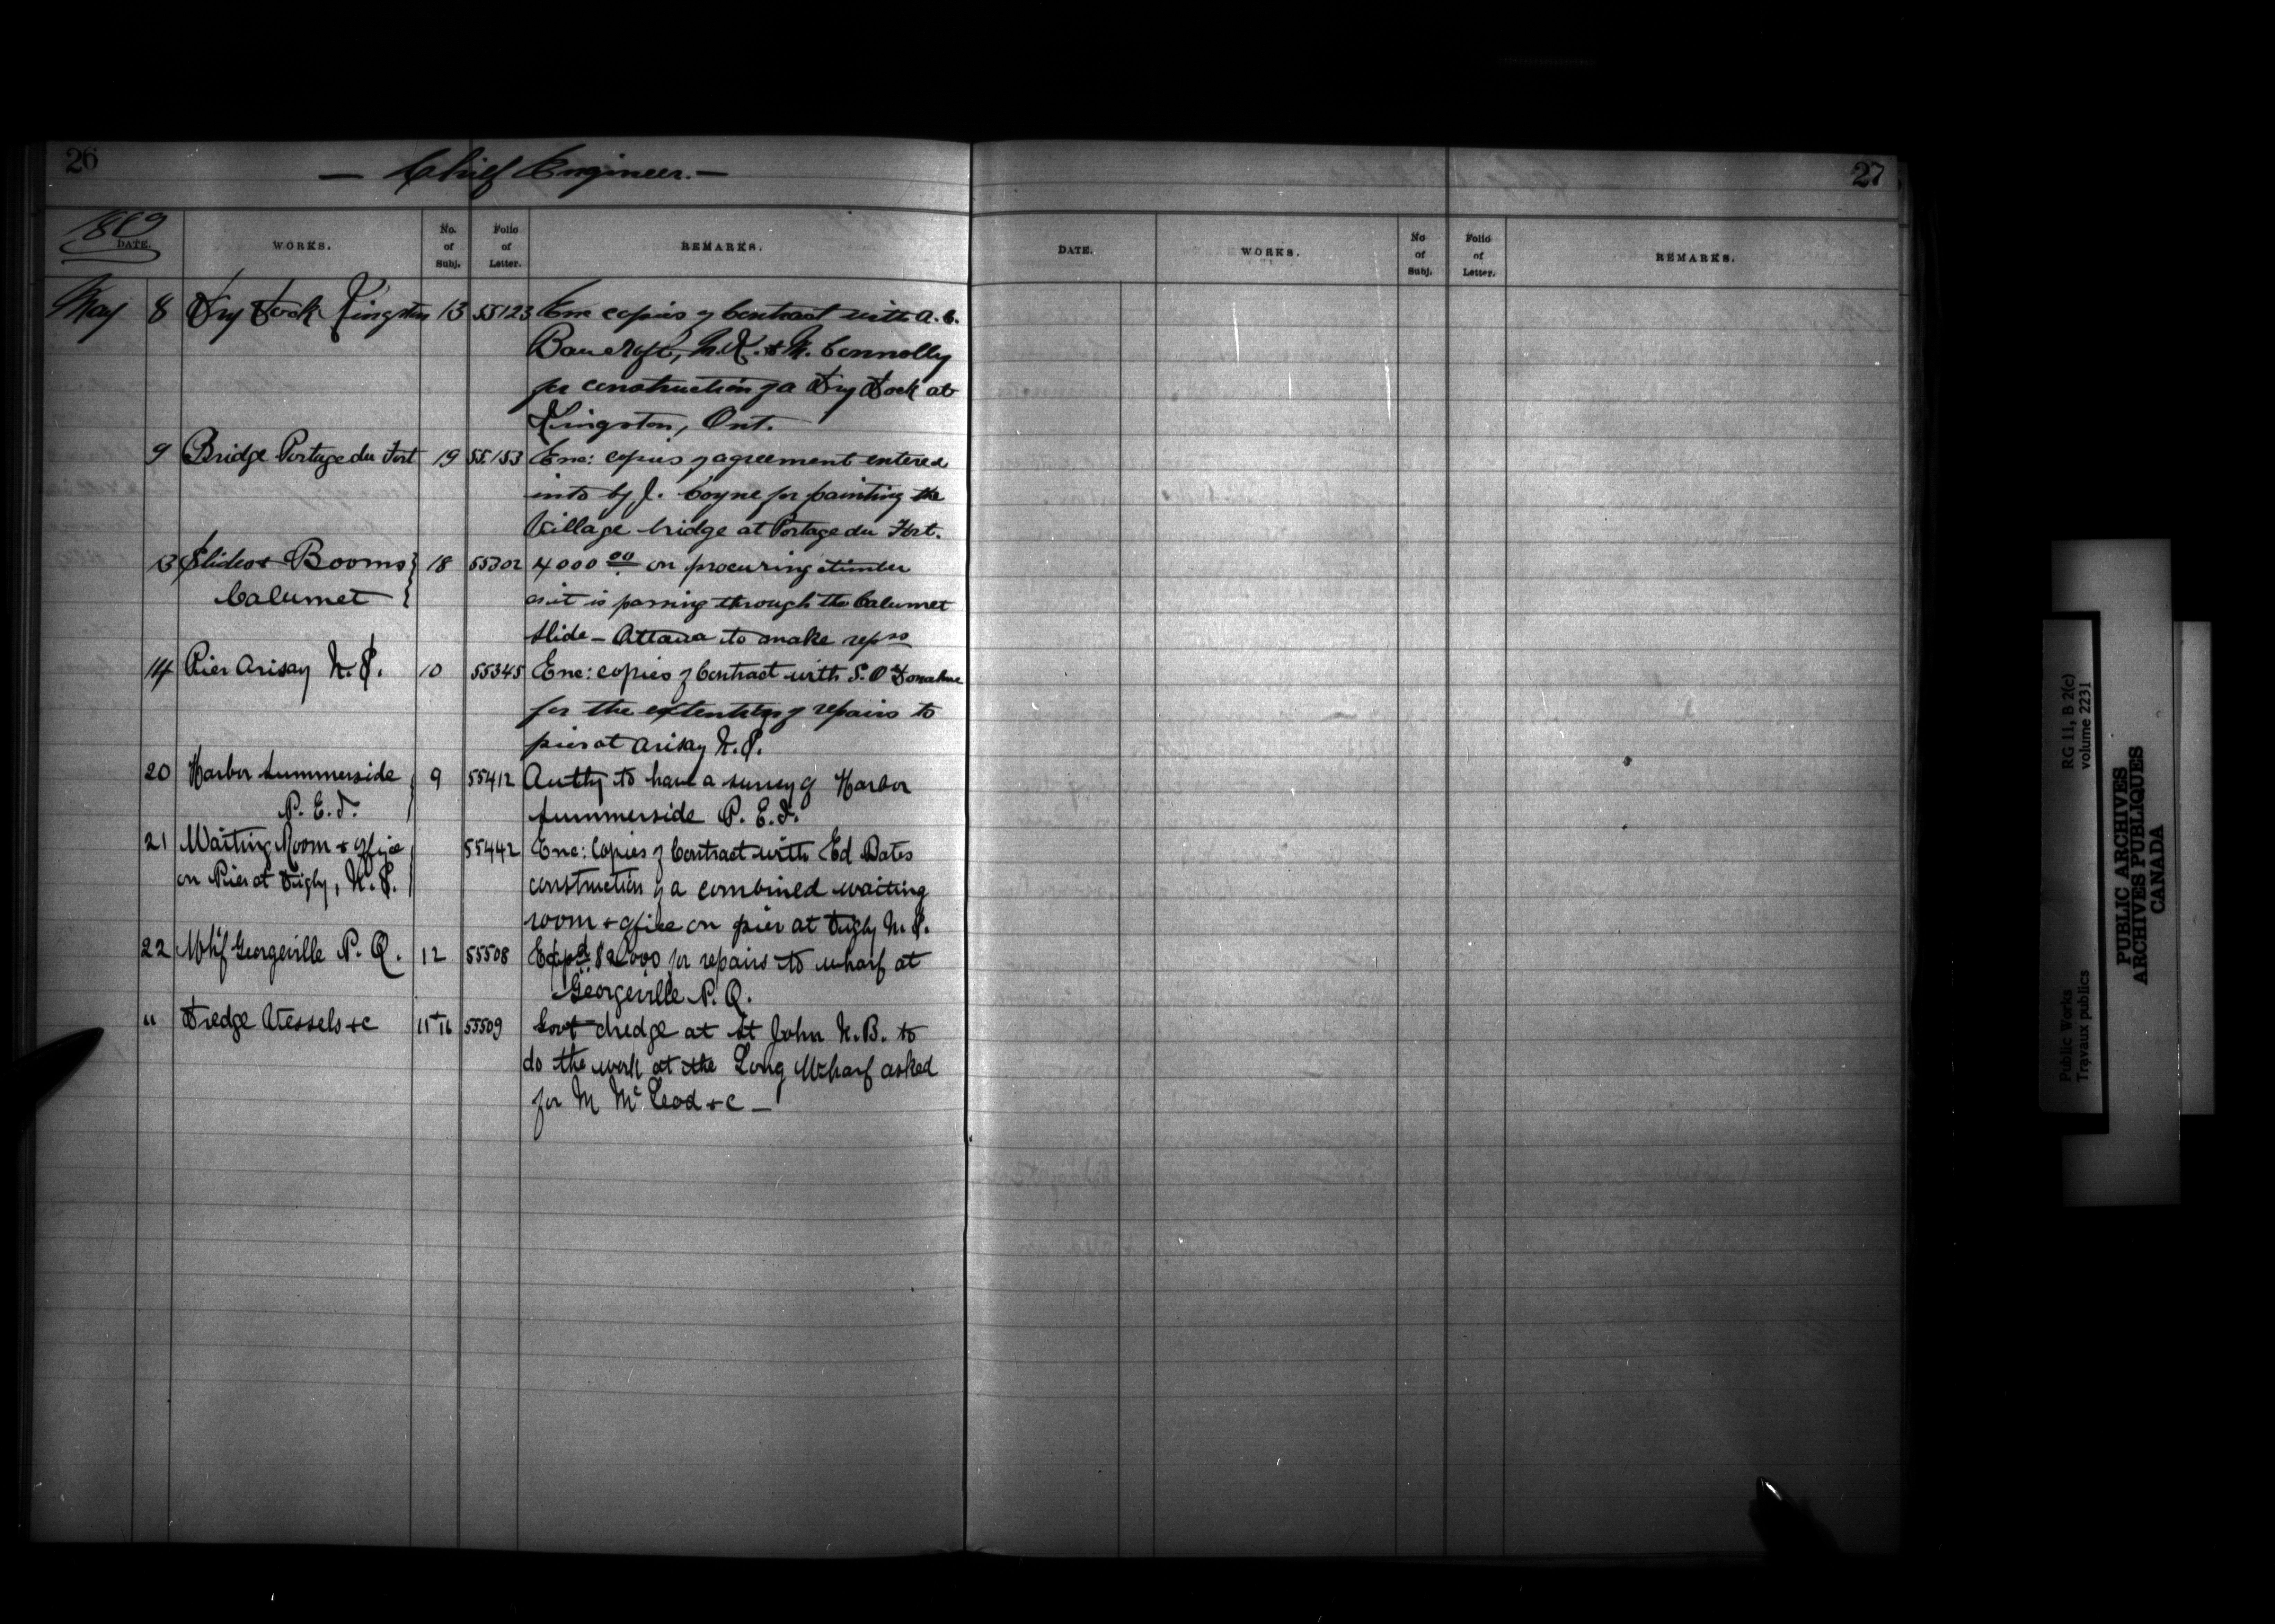 26
— Chief Engineer. —
1889
DATE.
WORKS.
No. of Subj.
Folio of Letter.
REMARKS.
May 8 Dry Dock Kingston 13 55123 Enc copies of Contract with A. C.
Bancroft, N.K. & M. Connolly
for construction of a Dry Dock at
Kingston, Ont.
9 Bridge Portage du Fort 19 55153 Enc: copies of agreement entered
into by J. Coyne for painting the
Village bridge at Portage du Fort.
13 Slides & Booms 18 55302 4000 00 on procuring timber
Calumet as it is passing through the Calumet
Slide – Ottawa to make reprs
14 Pier Arisaig N.S. 10 55345 Enc: copies of Contract with S. O'Donahue
for the extention of repairs to
pier at Arisaig N.S.
20 Harbor Summerside 9 55412 Authy to have a survey of Harbor
P. E. I. Summerside P. E. I.
21 Waiting Room & office 55442 Enc: Copies of Contract with Ed Bates
on Pier at Digby, N.S. construction of a combined waiting
room & office on pier at Digby N.S.
22 Whf Georgeville P. Q. 12 55508 Expd $2000 for repairs to wharf at
Georgeville P. Q.
" Dredge Vessels &c 11+16 55509 Govt dredge at St John N.B. to
do the work at the Long Wharf asked
for M McLeod &c —
27
DATE.
WORKS.
No of Subj.
Folio of Letter.
REMARKS.
Public Works
Travaux publics
RG 11, B 2(c)
volume 2231
PUBLIC ARCHIVES
ARCHIVES PUBLIQUES
CANADA